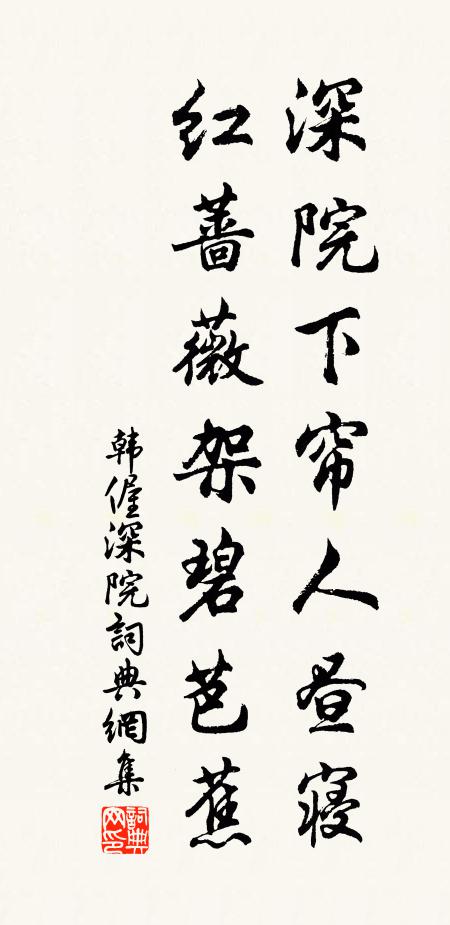 深院下帘人昼寝
红蔷薇架碧芭蕉
韩偓深院詞典網集
詞典网印